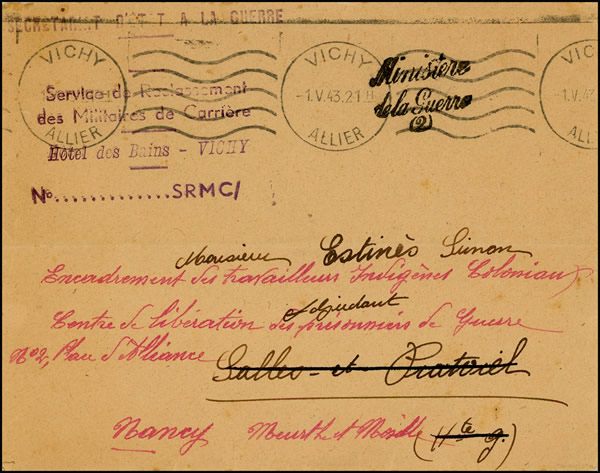 SECRETARIAT D'ETAT A LA GUERRE
VICHY
VICHY
VICHY
Ministère
de la Guerre
(2)
1.V.43.21
1.V.43
Service de Reclassement
des Militaires de Carrière
ALLIER
ALLIER
ALLIER
Hôtel des Bains - VICHY
No..............SRMC/
Monsieur Estinès Simon
Encadrement des travailleurs Indigènes Coloniaux
adjudant
Centre de libération des prisonniers de Guerre
No 2, Place d'Alliance
Nancy Meurthe et Moselle (Hte g.)